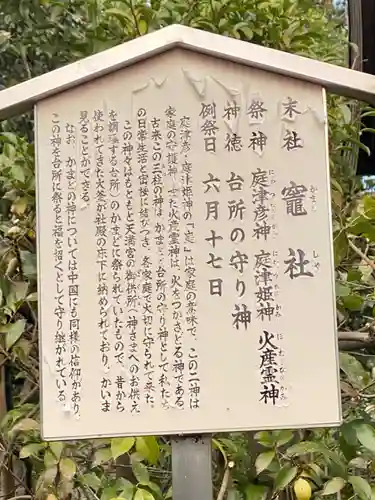 末社 竈社
かまど しゃ
祭神 庭津彦神 庭津姫神 火産霊神
にわつひこのかみ にわつひめのかみ ほむすびのかみ
神徳 台所の守り神
例祭日 六月十七日
庭津彦・庭津姫神の「庭」は家庭の意味で、この二神は
家庭の守護神、また火産霊神は、火をつかさどる神である。
古来この三柱の神は、かまど・台所の守り神として私たち
の日常生活と密接に結びつき、各家庭で大切に守られて来た。
この神々はもともと天満宮の御供所(神さまへのお供え
を調理する台所)のかまどに祭られていたもので、昔から
使われてきた大釜が社殿の床下に納められており、かいま
見ることができる。
なお、かまどの神については中国にも同様の信仰があり、
この神を台所に祭ると福を招くとして守り継がれている。